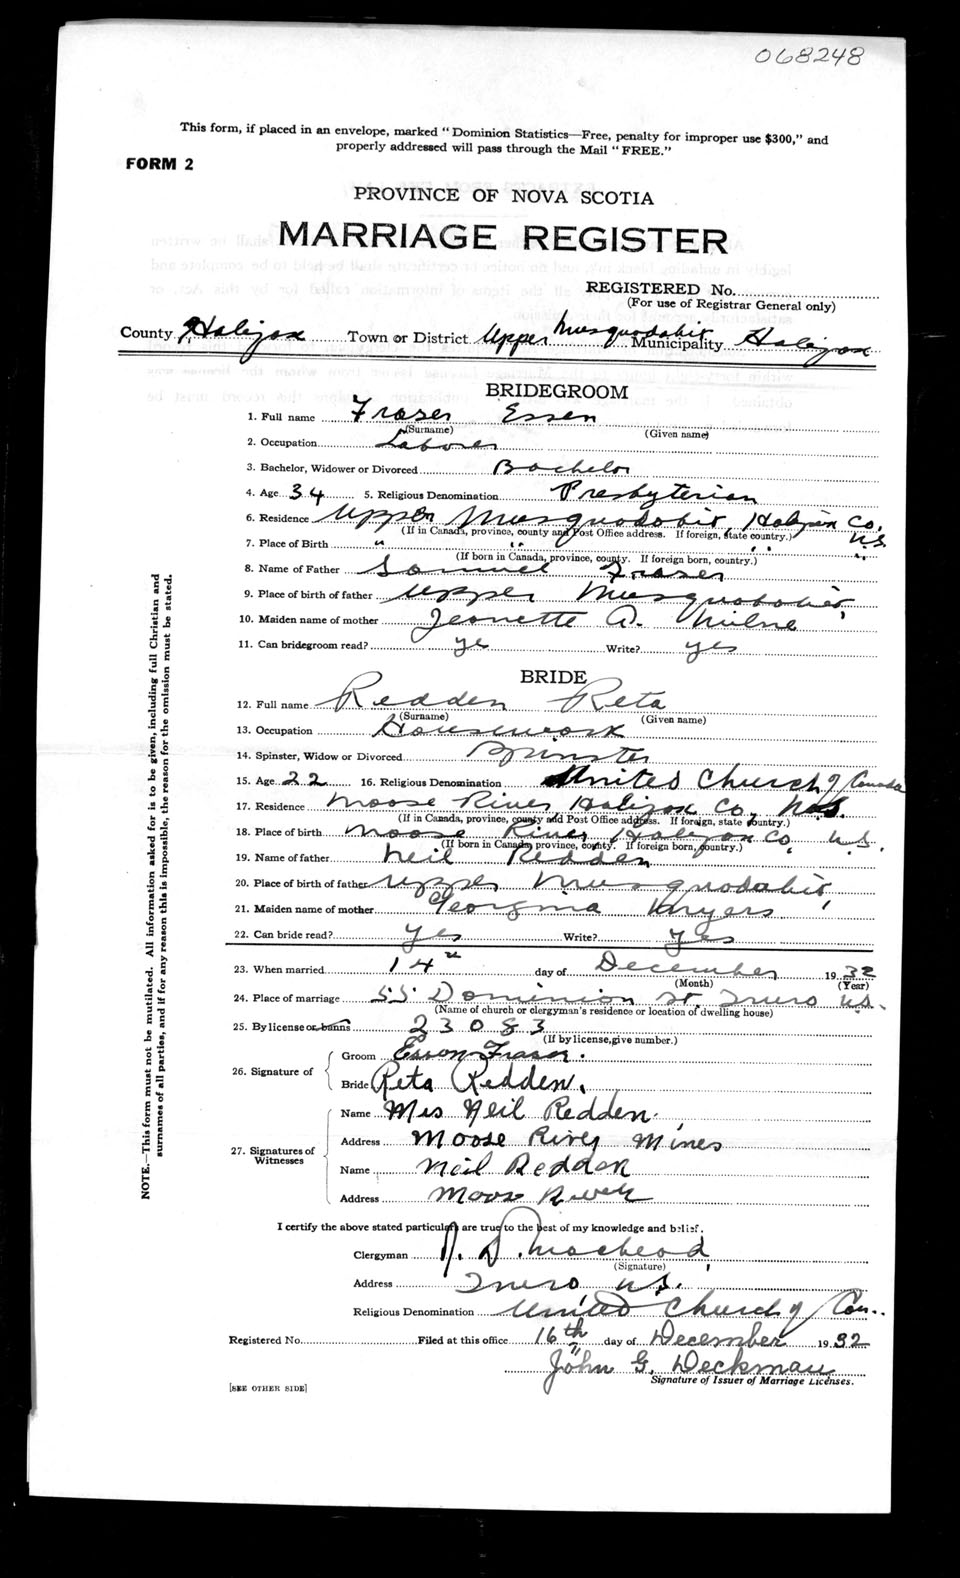 068248
This form, if placed in an envelope, marked "Dominion Statistics—Free, penalty for improper use $300," and
properly addressed will pass through the Mail "FREE."
FORM 2
PROVINCE OF NOVA SCOTIA
MARRIAGE REGISTER
REGISTERED No.
(For use of Registrar General only)
County Halifax Town or District Upper Musquodobit Municipality Halifax
BRIDEGROOM
1. Full name Fraser Essen
(Surname) (Given name)
2. Occupation Laborer
3. Bachelor, Widower or Divorced Bachelor
4. Age 34 5. Religious Denomination Presbyterian
6. Residence Upper Musquodobit, Halifax Co. N.S.
(If in Canada, province, county and Post Office address. If foreign, state country.)
7. Place of Birth " " " "
(If born in Canada, province, county. If foreign born, country.)
8. Name of Father Samuel Fraser
9. Place of birth of father Upper Musquodobit,
10. Maiden name of mother Jeanette A. Milne
11. Can bridegroom read? ye Write? yes
BRIDE
12. Full name Redden Reta
(Surname) (Given name)
13. Occupation Housework
14. Spinster, Widow or Divorced Spinster
15. Age 22 16. Religious Denomination United Church of Canada
17. Residence Moose River Halifax Co, N.S.
(If in Canada, province, county and Post Office address. If foreign, state country.)
18. Place of birth Moose River Halifax Co. N.S.
(If born in Canada, province, county. If foreign born, country.)
19. Name of father Neil Redden
20. Place of birth of father Upper Musquodabit,
21. Maiden name of mother Georgina Myers
22. Can bride read? yes Write? yes
23. When married 14th day of December 1932
(Month) (Year)
24. Place of marriage 55 Dominion St, Truro N.S.
(Name of church or clergyman's residence or location of dwelling house)
25. By license or banns 23083
(If by license, give number.)
26. Signature of
Groom Esson Fraser.
Bride Reta Redden.
27. Signatures of Witnesses
Name Mrs Neil Redden.
Address Moose River Mines
Name Neil Redden
Address Moose River
I certify the above stated particulars are true to the best of my knowledge and belief.
Clergyman D. Macleod
(Signature)
Address Truro, N.S.
Religious Denomination United Church of Can..
Registered No. Filed at this office 16th day of December 1932
John G. Deckman
Signature of Issuer of Marriage Licenses.
[SEE OTHER SIDE]
NOTE.—This form must not be mutilated. All information asked for is to be given, including full Christian and
surnames of all parties, and if for any reason this is impossible, the reason for the omission must be stated.